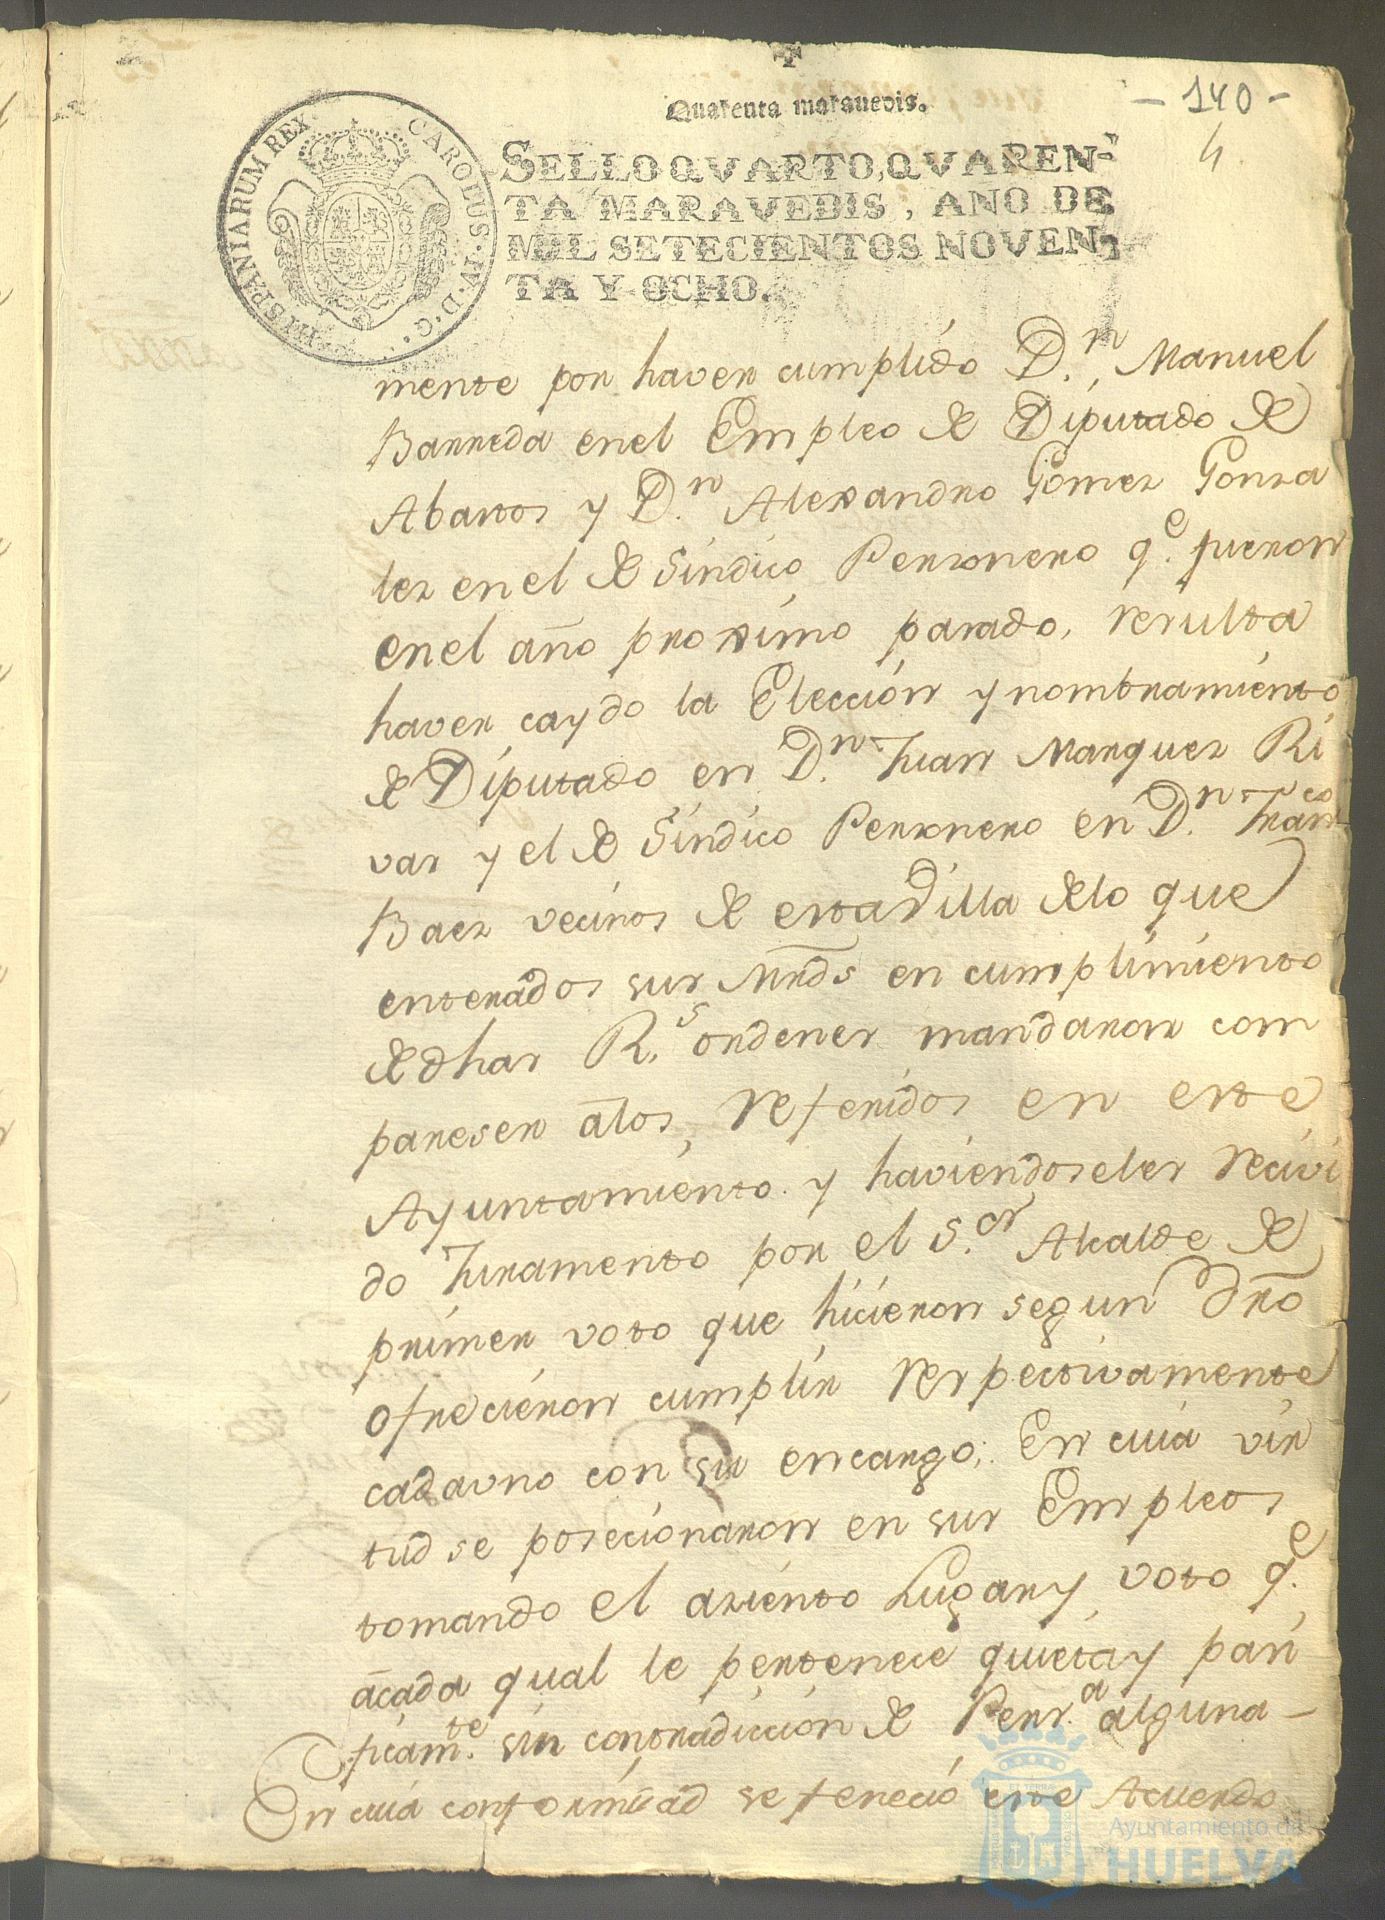 Quarenta maravedis.
- 140 -
4
SELLO QVARTO, QVAREN-
TA MARAVEDIS, AÑO DE
MIL SETECIENTOS NOVEN-
TA Y OCHO.
CAROLUS·IV·D·G· HISPANIARUM REX·
mente por haver cumplido D.n Manuel
Barreda enel Empleo de Diputado de
Abastos y D.n Alexandro Gomez Gonza
lez en el de Sindico Personero q.e fueron
enel año proximo pasado, resulta
haver caydo la Elección y nombramiento
de Diputado en D.n Juan Marquez Ri
vas y el de Sindico Personero en D.n Fran.co
Baez vecinos de esta Villa delo que
enterados sus Mrds en cumplimiento
de dhas R.s ordenes mandaron com
pareser alos referidos en este
Ayuntamiento y haviendoseles recivi
do Juramento por el S.or Alcalde de
primer voto que hicieron segun Dro
ofrecieron cumplir respectivamente
cada uno con su encargo; En cuia vir
tud se posecionaron en sus Empleos
tomando el asiento Lugar y voto q.e
acada qual le pertenece quieta y pasi
ficam.te sin contradiccion de Pers.a alguna -
En cuia conformidad se feneció este Acuerdo
Ayuntamiento de
HUELVA